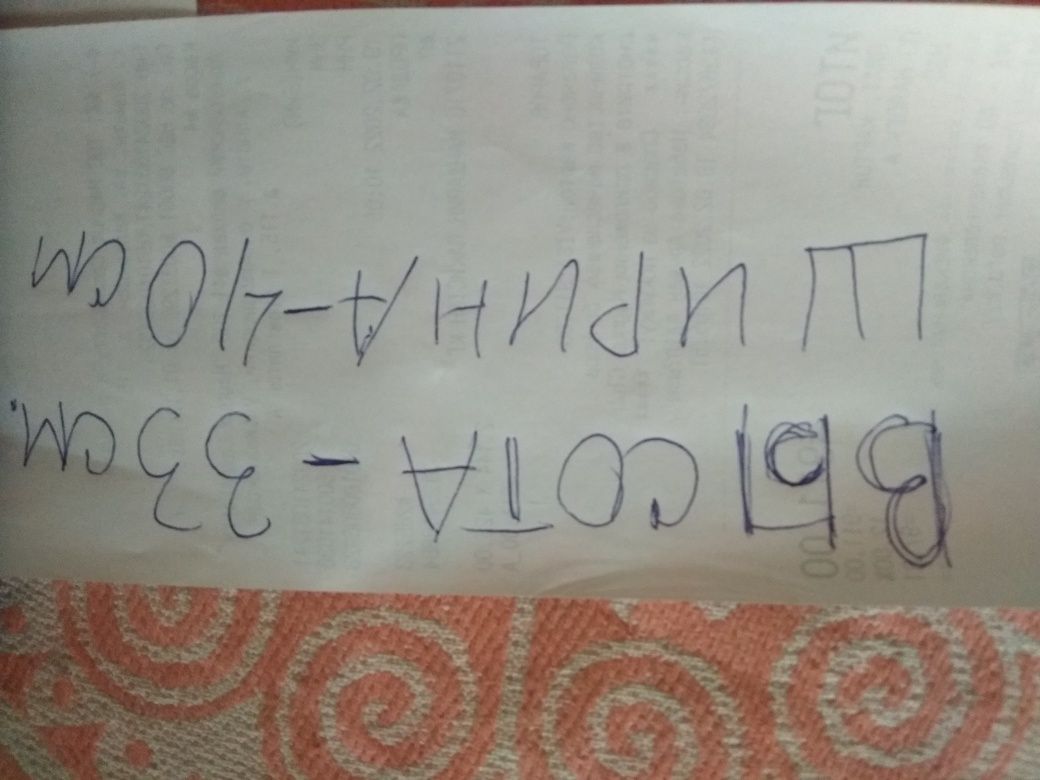 ВЫСОТА - 33 СМ.
ШИРИНА - 40 СМ